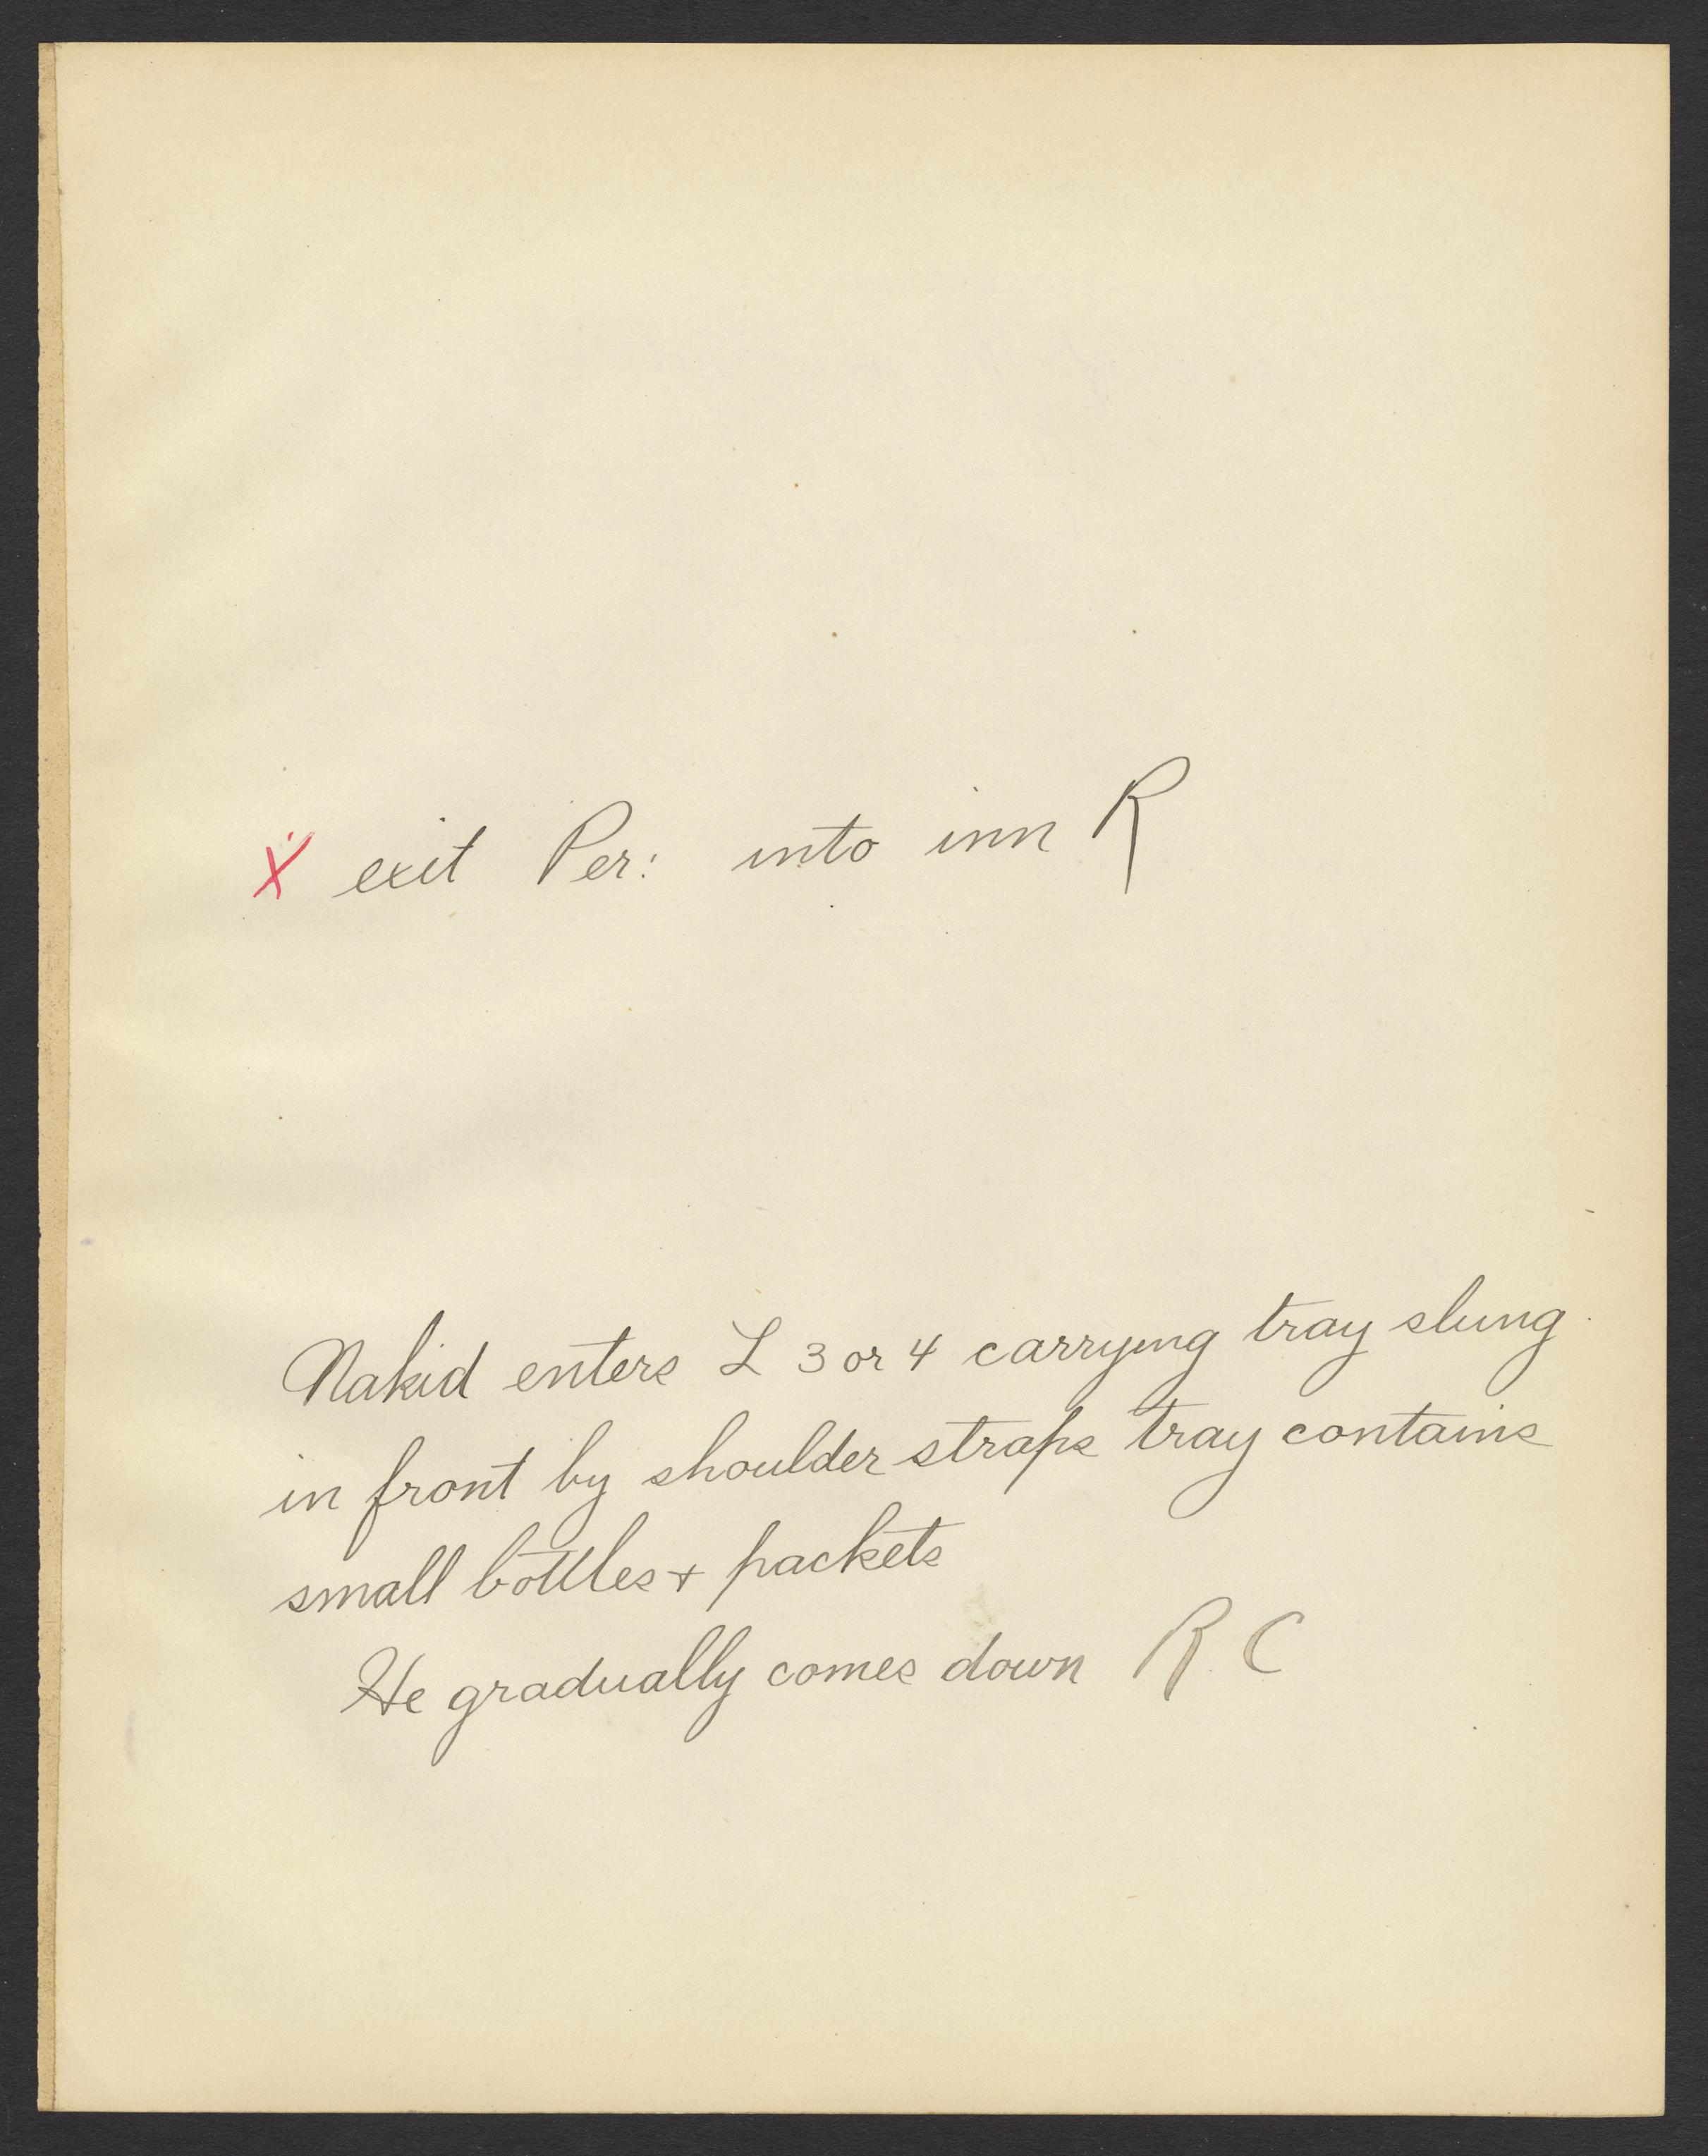 X exit Per: into inn R
Nakid enters L 3 or 4 carrying tray slung
in front by shoulder straps tray contains
small bottles + packets
He gradually comes down R. C